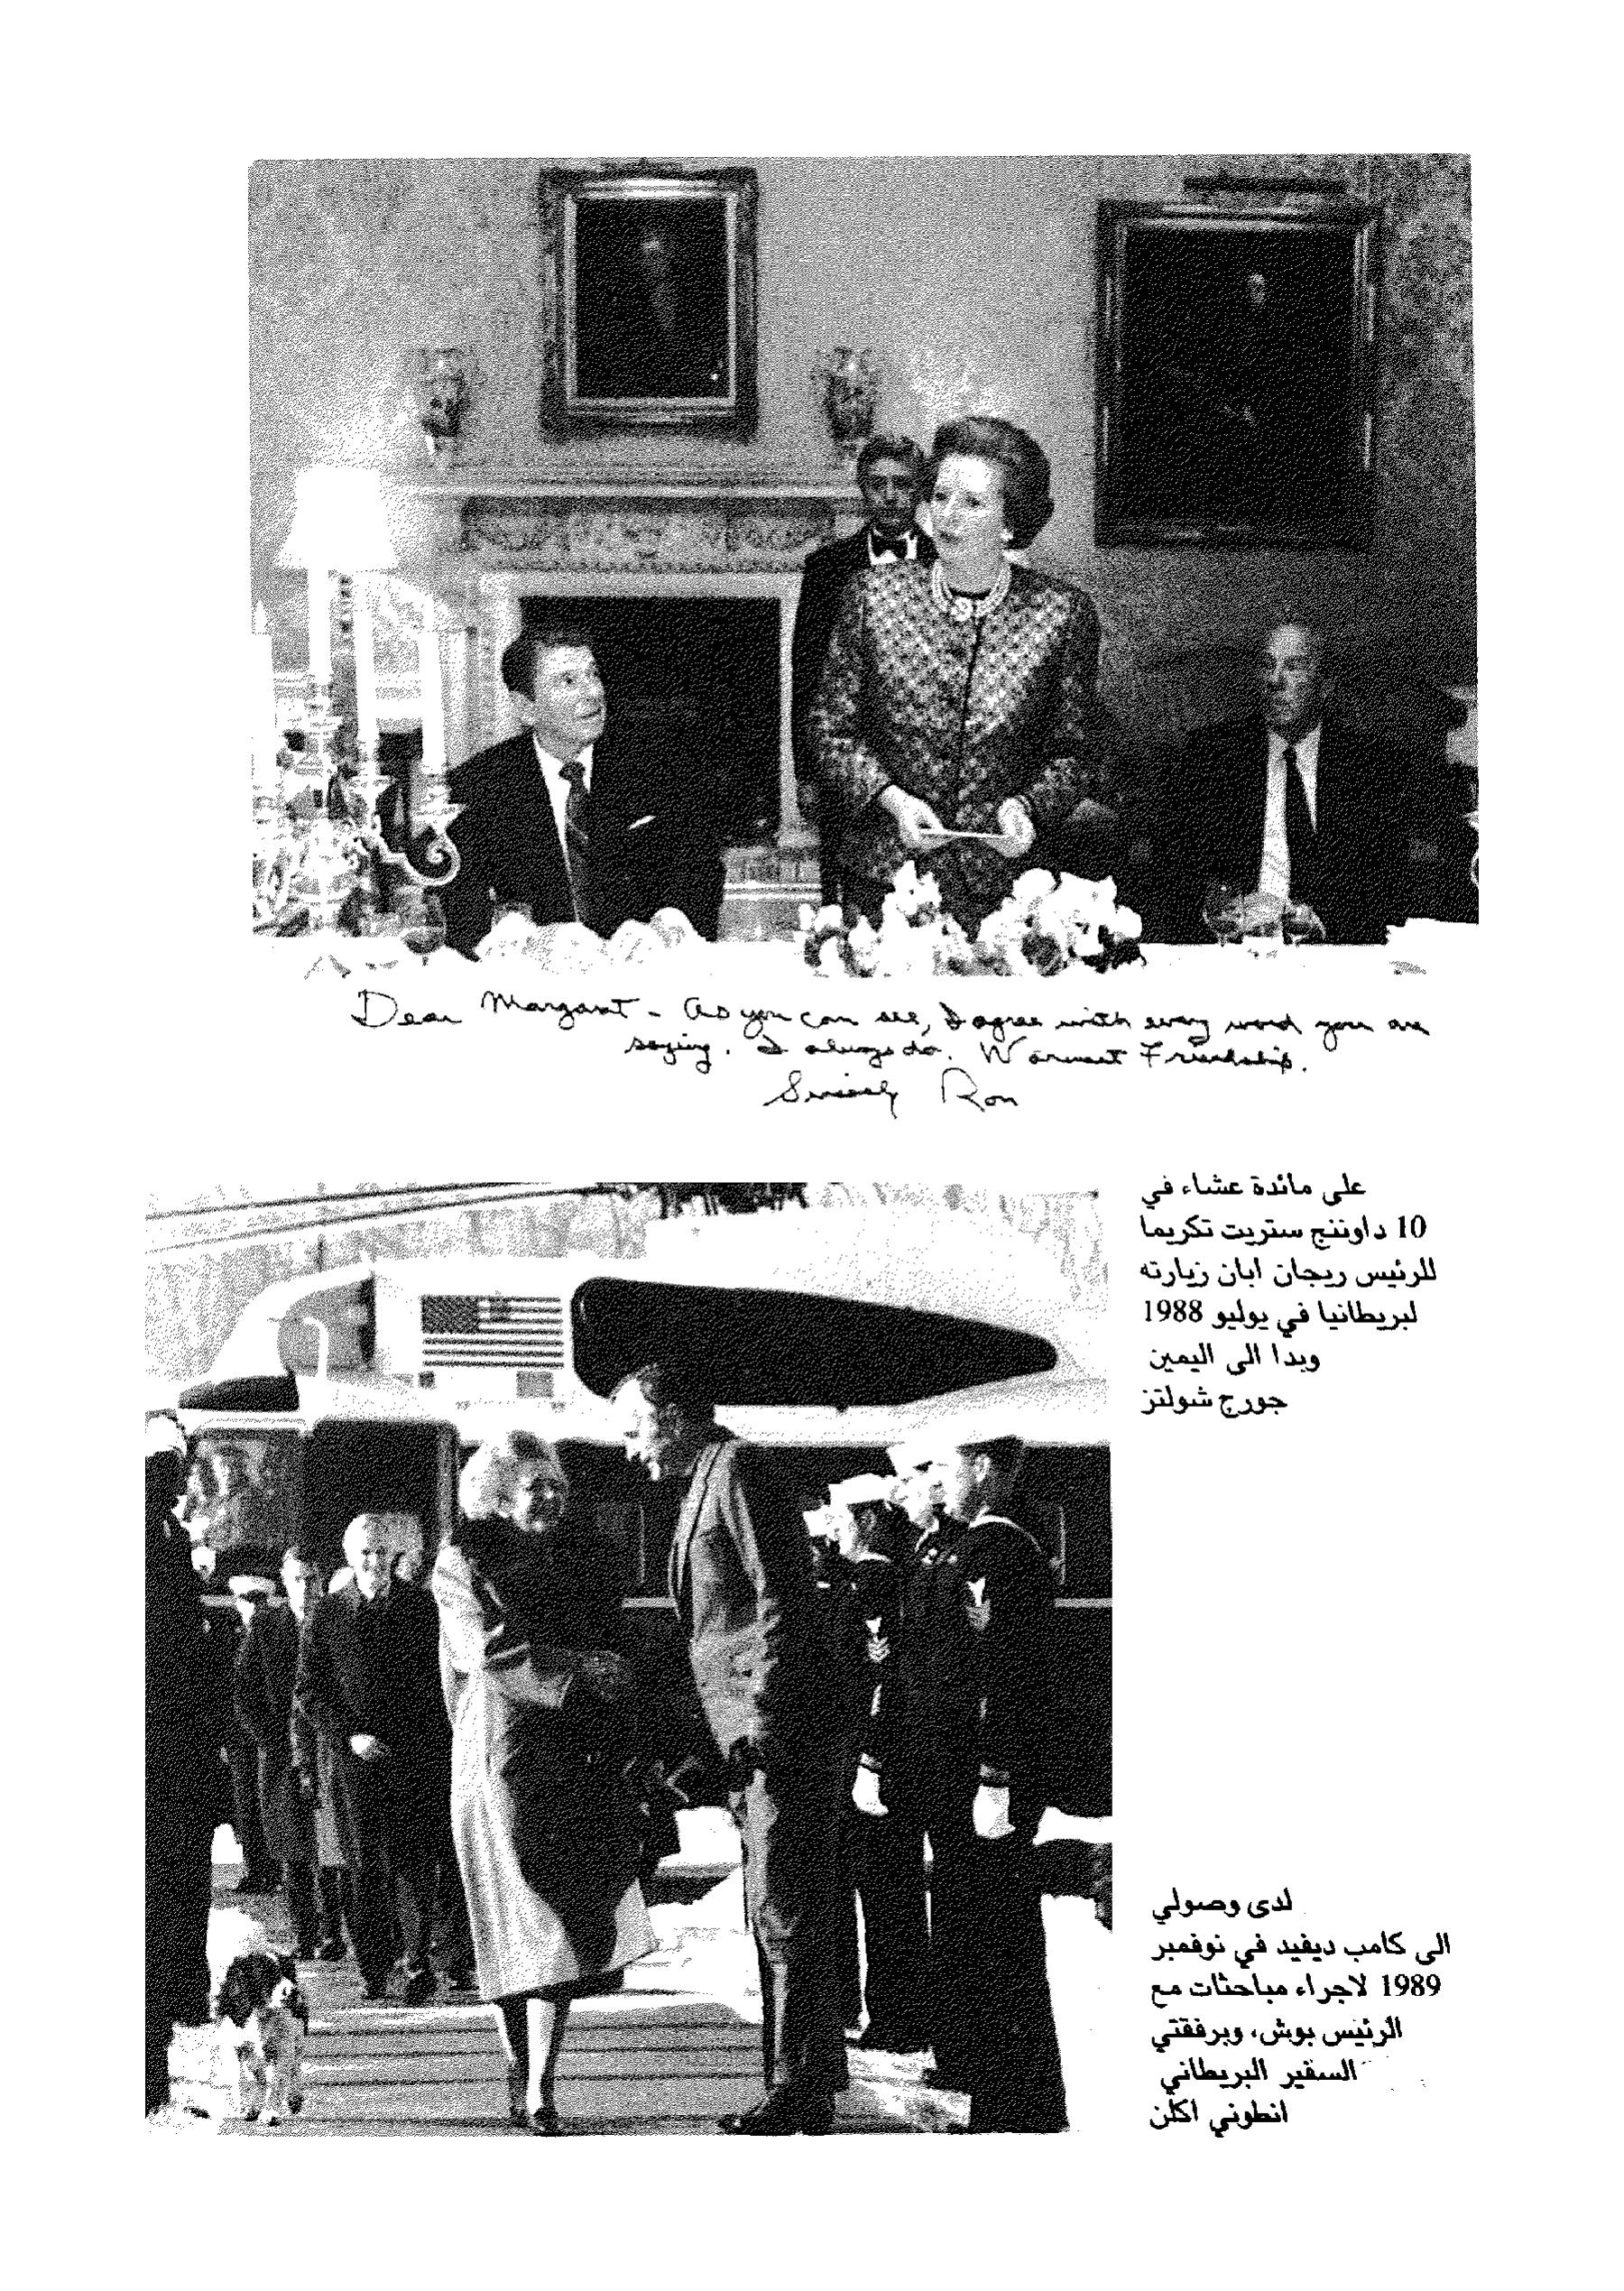 Dear Margaret - As you can see, I agree with every word you are
saying. I always do. Warmest Friendship.
Sincerely Ron
على مائدة عشاء في
10 داوننج ستريت تكريما
للرئيس ريجان ابان زيارته
لبريطانيا في يوليو 1988
وبدا الى اليمين
جورج شولتز
لدى وصولي
الى كامب ديفيد في نوفمبر
1989 لاجراء مباحثات مع
الرئيس بوش، وبرفقتي
السفير البريطاني
انطوني اكلن